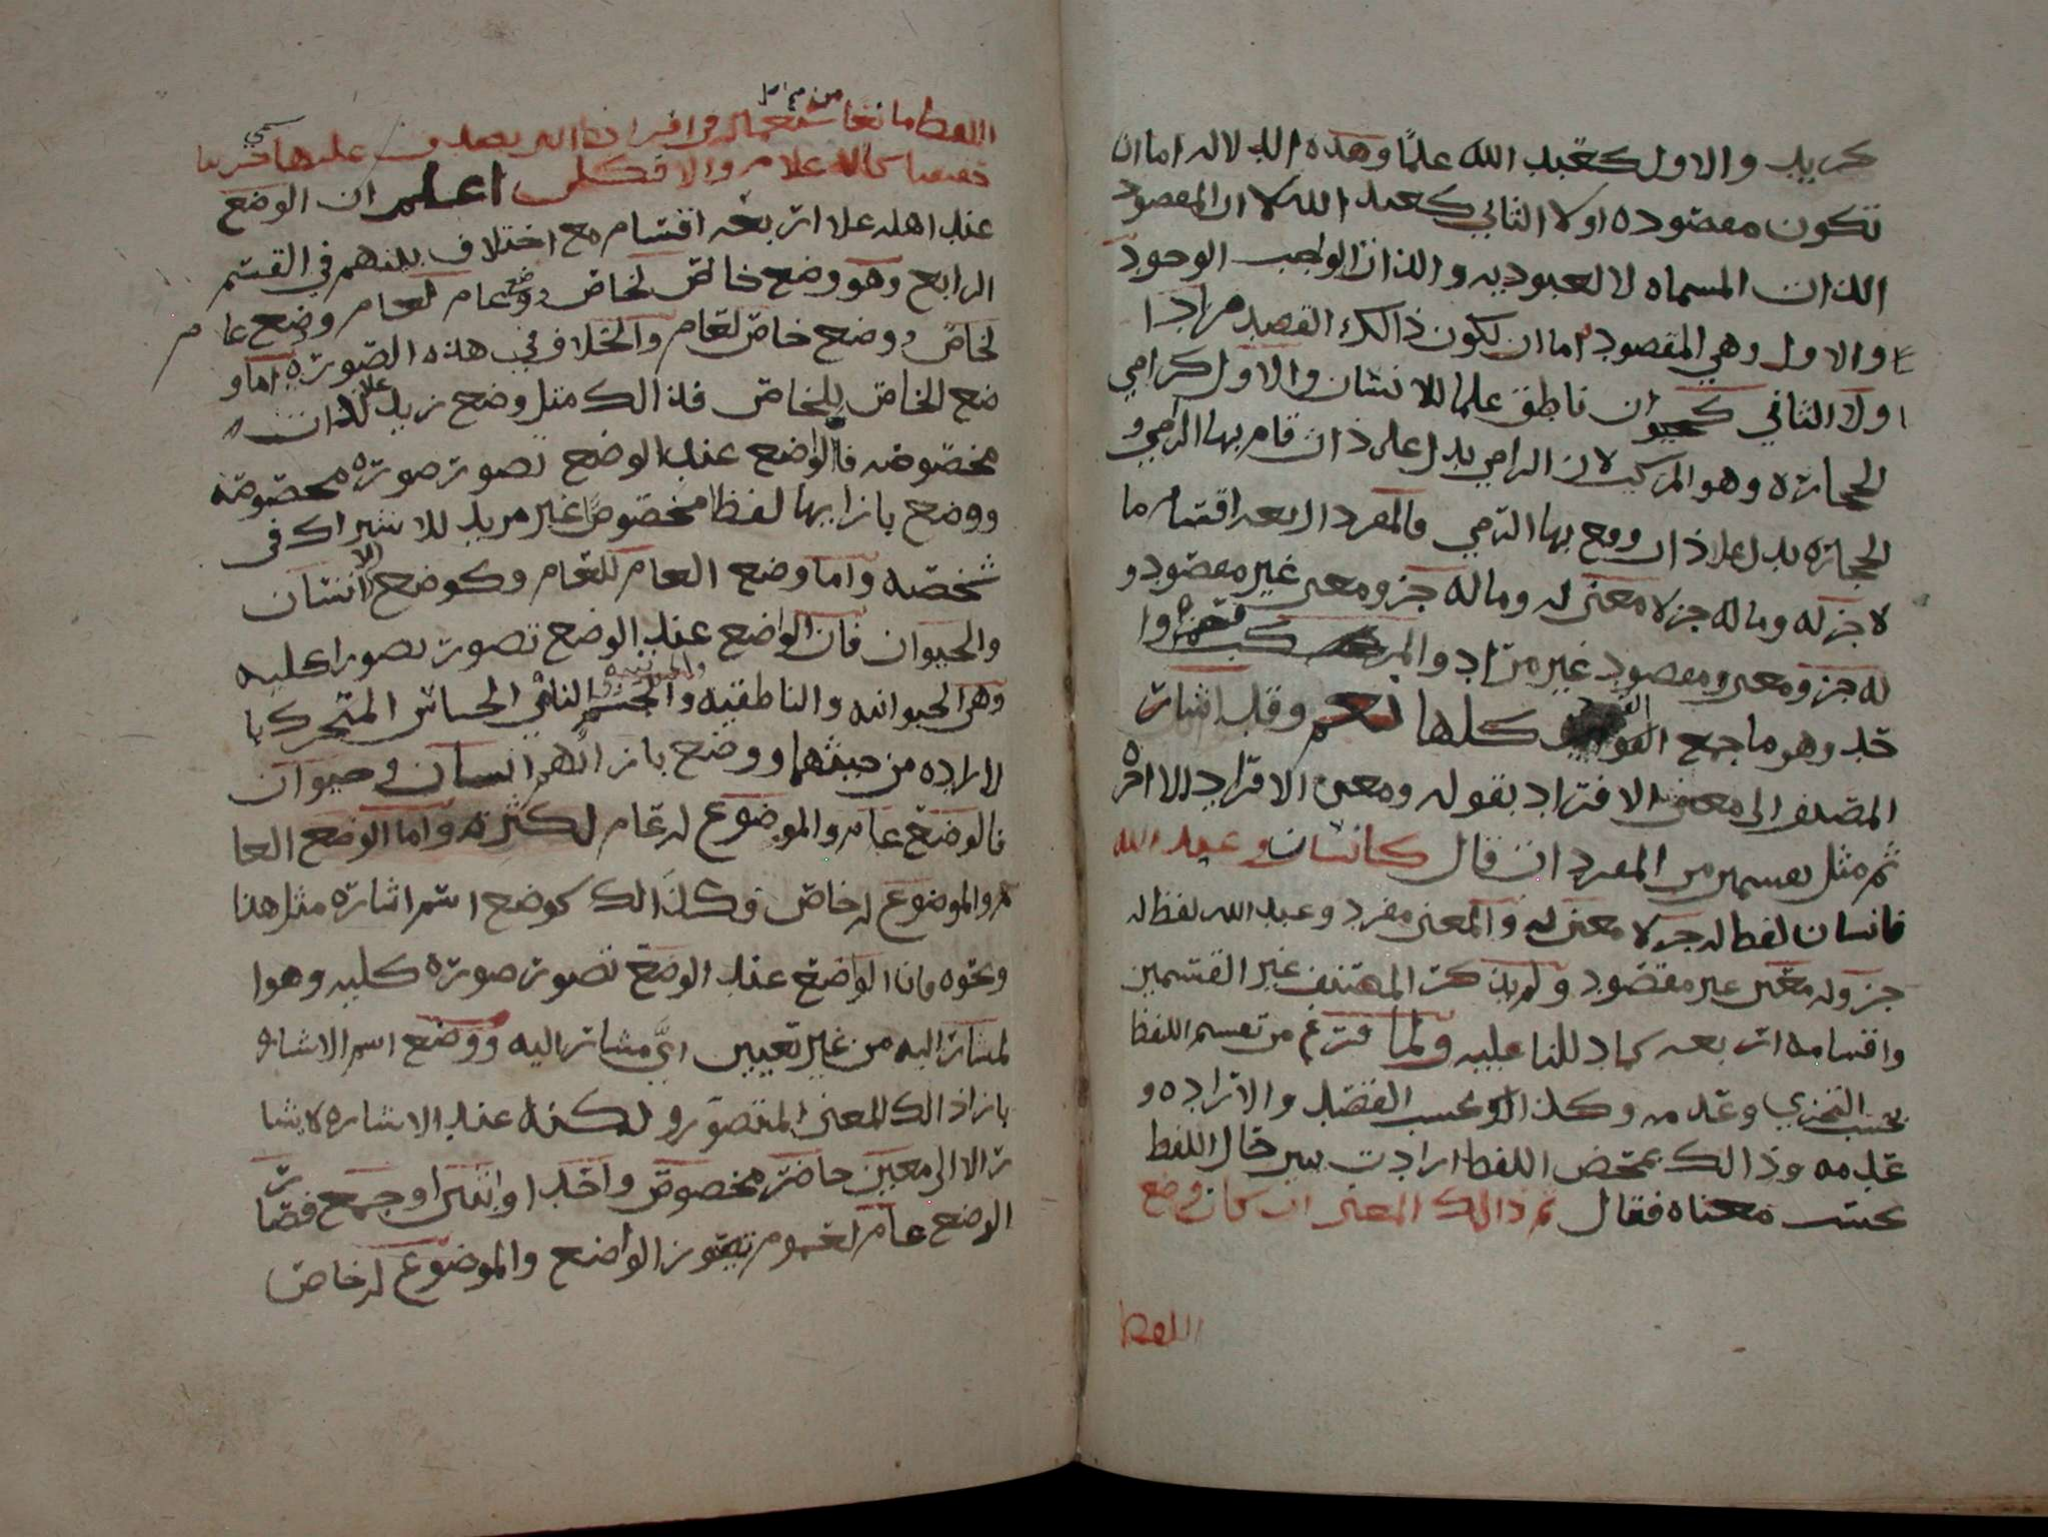 كزيد والاول كعبد الله علمًا وهذه الدلاله اما ان
تكون مقصوده او لا الثاني كعبد الله لان المقصود
الذات المسماه لا العبوديه والذات الواجب الوجود
والاول وهي المقصود اما ان يكون ذالك القصد مرادا
اولا الثاني كحيوان ناطق علما للانسان والاول كرامي
الحجاره وهو المركب لان الرامي يدل على ذات قام بها الرمي و
الحجاره يدل علا ذات وقع بها الرمي فالمفرد اربعه اقسام ما
لا جز له وما له جز لا معنى له وما له جز ومعنى غير مقصود و
له جز ومعنى ومقصود غير مراد والمركب قسم وا
حد وهو ما جمع القيود كلها نعم وقد اشار
المصنف الى معنى الافراد بقوله ومعنى الافراد الا اخره
ثم مثل بقسمين من المفرد ان قال كانسان وعبد الله
فانسان لفظ له جز لا معنى له والمعنى مفرد وعبد الله لفظ له
جز وله معنى غير مقصود ولم يذكر المصنف غير القسمين
واقسامه اربعه كما دللنا عليه ولما فرغ من تقسيم اللفظ
بحسب التجزي وعدمه وكذا بحسب القصد والاراده و
عدمه وذالك بمحض اللفظ اراد يبين حال اللفظ
بحسب معناه فقال ثم ذالك المعنى ان كان وضع
اللفظ
اللفظ
حقيقيا كالاعلام والا فكلي اعلم ان الوضع
عند اهله علا اربعه اقسام مع اختلاف بينهم في القسم
الرابع وهو وضع خاص لخاص ووضع عام لعام ووضع عام
لخاص ووضع خاص لعام والخلاف في هذه الصوره اما و
ضع الخاص للخاص فذالك مثل وضع زيد علا لذات
مخصوصه فالواضع عند الوضع تصور صوره مخصوصه
ووضع بازايها لفظا مخصوصًا غير مريد للاشتراك في
شخصه واما وضع العام للعام وكوضع الانسان
والحيوان فان الواضع عند الوضع تصور تصورا كليه
وهي الحيوانيه والناطقيه والجسم النامي الحساس المتحرك با
لاراده من حيثهما ووضع بازائهم انسان وحيوان
فالوضع عام والموضوع له عام لكثرته واما الوضع العا
م والموضوع له خاص فكذالك كوضع اسم اشاره مثل هذا
ونحوه فان الواضع عند الوضع تصور صوره كليه وهوا
لمشار اليه من غير تعيين ايّ مشار اليه ووضع اسم الاشاره
بازا ذالك المعنى المتصور ولكنه عند الاشاره لا يشا
ر الا الى معين حاضر مخصوص واحد او اثنين او جمع فصار
الوضع عام لعموم تصور الواضع والموضوع له خاص